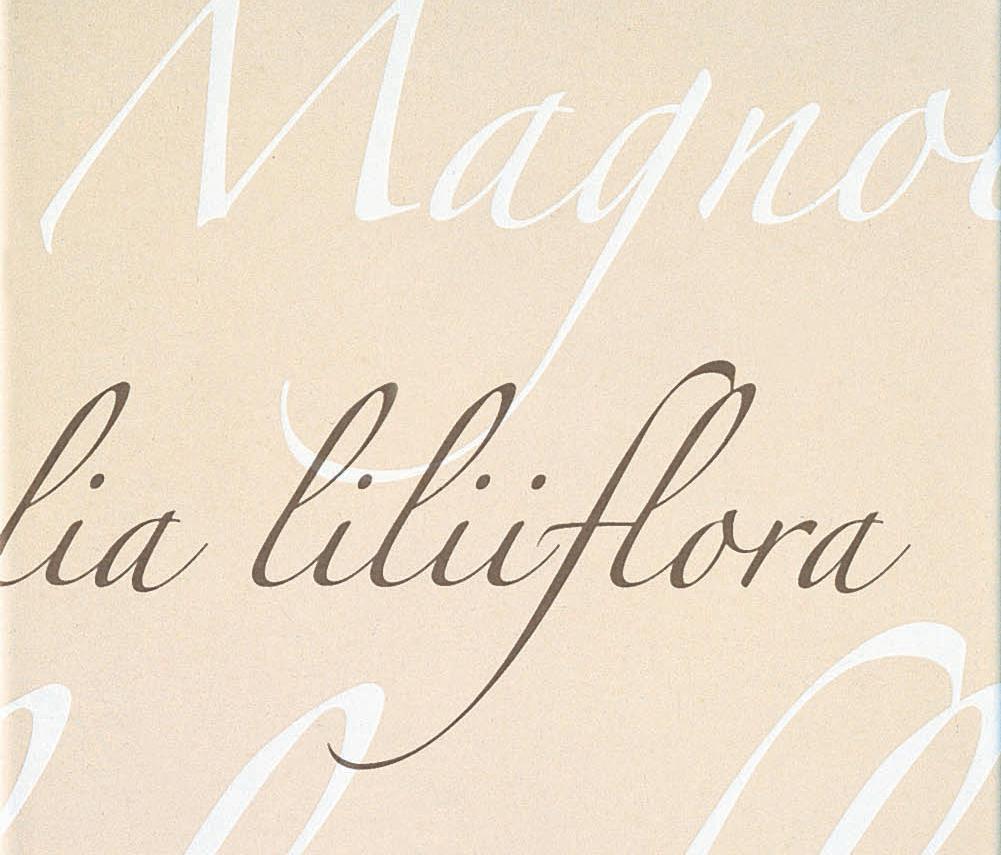 Magno
lia liliiflora